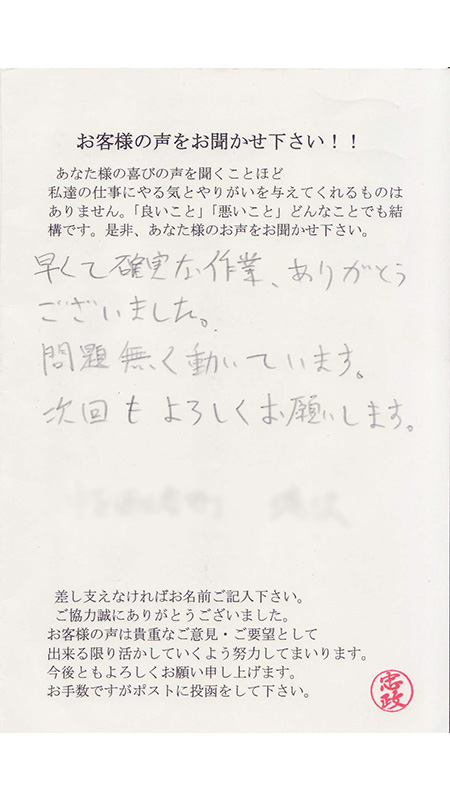 お客様の声をお聞かせ下さい！！
あなた様の喜びの声を聞くことほど
私達の仕事にやる気とやりがいを与えてくれるものは
ありません。「良いこと」「悪いこと」どんなことでも結
構です。是非、あなた様のお声をお聞かせ下さい。
早くて確実な作業、ありがとう
ございました。
問題無く動いています。
次回もよろしくお願いします。
差し支えなければお名前ご記入下さい。
ご協力誠にありがとうございました。
お客様の声は貴重なご意見・ご要望として
出来る限り活かしていくよう努力してまいります。
今後ともよろしくお願い申し上げます。
お手数ですがポストに投函をして下さい。
忠政